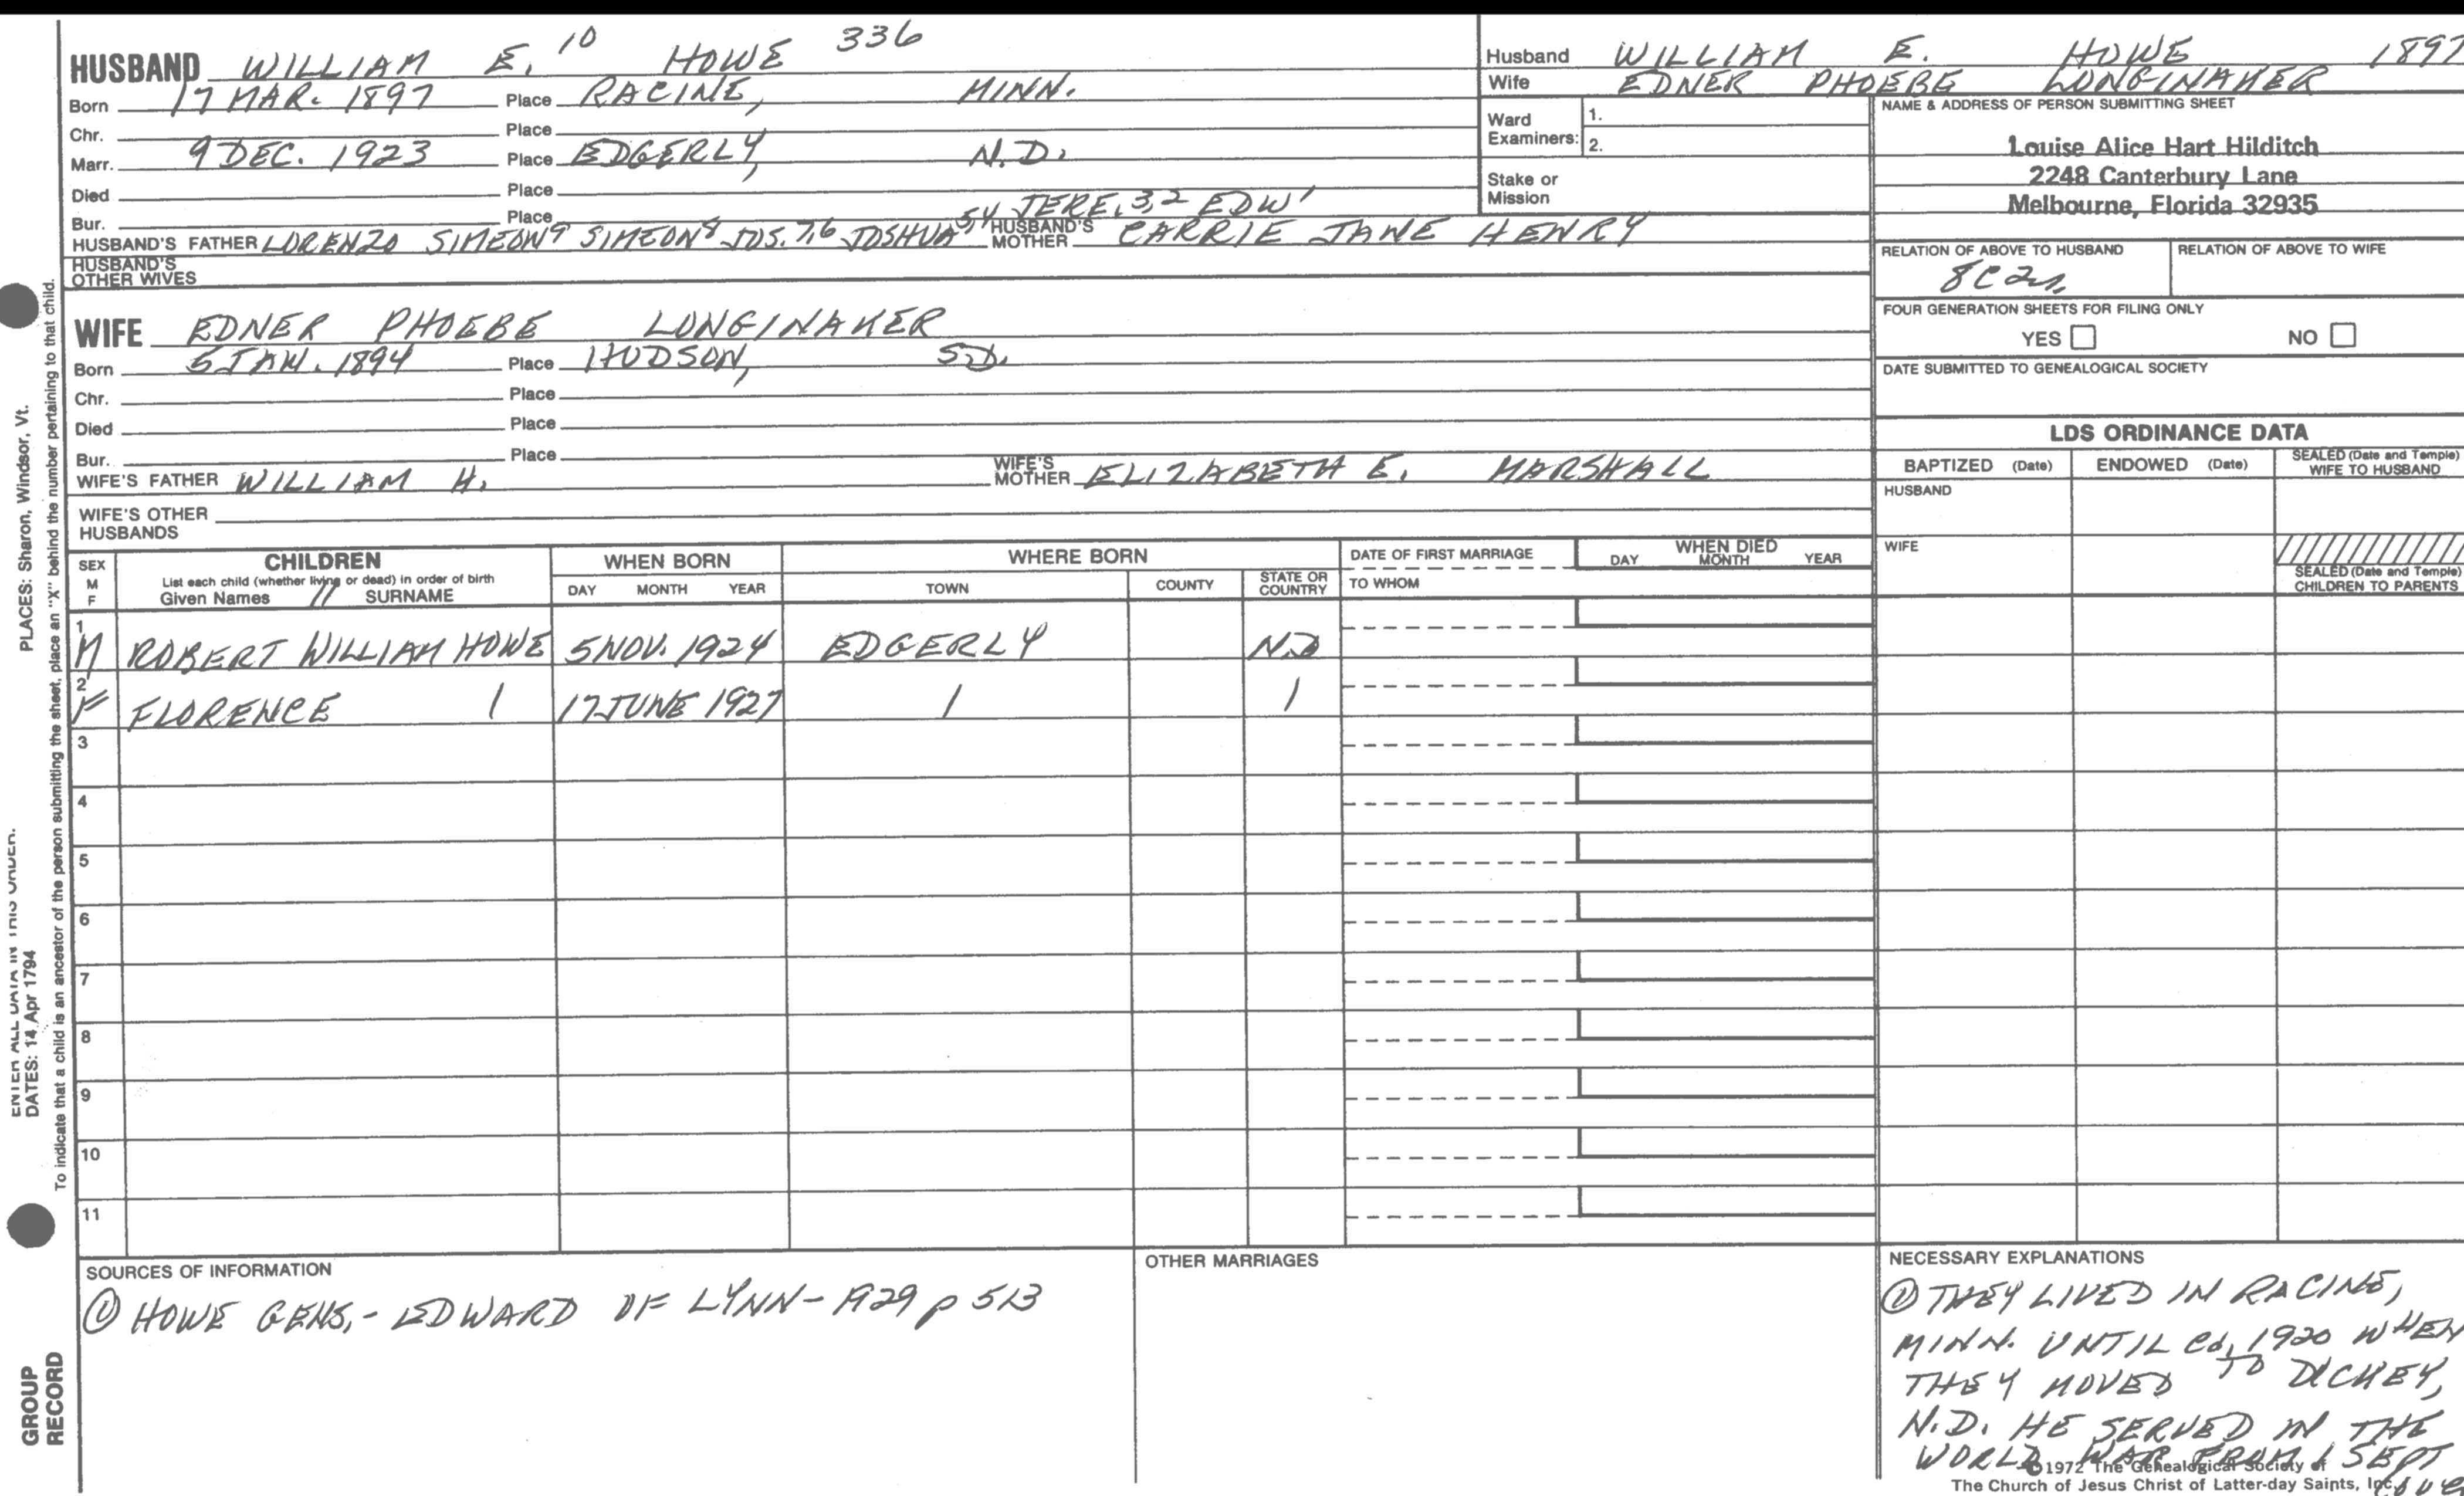 HUSBAND WILLIAM E. 10 HOWE 336
Born 17 MAR. 1897 Place RACINE, MINN.
Chr. Place
Marr. 9 DEC. 1923 Place EDGERLY, N.D.
Died Place
Bur. Place
54 JERE. 3,2 EDW'
HUSBAND'S FATHER LORENZO SIMEON9 SIMEON8 JOS. 7,6 JOSHUA HUSBAND'S MOTHER CARRIE JANE HENRY
HUSBAND'S OTHER WIVES
WIFE EDNER PHOEBE LONGINAKER
Born 5 JAN. 1894 Place HUDSON, S.D.
Chr. Place
Died Place
Bur. Place
WIFE'S FATHER WILLIAM H. WIFE'S MOTHER ELIZABETH E. MARSHALL
WIFE'S OTHER HUSBANDS
Husband WILLIAM E. HOWE 1897
Wife EDNER PHOEBE LONGINAKER
Ward Examiners: 1.
2.
Stake or Mission
NAME & ADDRESS OF PERSON SUBMITTING SHEET
Louise Alice Hart Hilditch
2248 Canterbury Lane
Melbourne, Florida 32935
RELATION OF ABOVE TO HUSBAND RELATION OF ABOVE TO WIFE
8C2r
FOUR GENERATION SHEETS FOR FILING ONLY
YES NO
DATE SUBMITTED TO GENEALOGICAL SOCIETY
LDS ORDINANCE DATA
BAPTIZED (Date) ENDOWED (Date) SEALED (Date and Temple) WIFE TO HUSBAND
HUSBAND
WIFE
SEALED (Date and Temple) CHILDREN TO PARENTS
SEX M F CHILDREN WHEN BORN WHERE BORN DATE OF FIRST MARRIAGE WHEN DIED
List each child (whether living or dead) in order of birth
Given Names // SURNAME DAY MONTH YEAR TOWN COUNTY STATE OR COUNTRY TO WHOM DAY MONTH YEAR
1 M ROBERT WILLIAM HOWE 5 NOV. 1924 EDGERLY N.D
2 F FLORENCE | 17 JUNE 1927 | |
3
4
5
6
7
8
9
10
11
SOURCES OF INFORMATION
① HOWE GENS. - EDWARD OF LYNN - 1929 p 513
OTHER MARRIAGES
NECESSARY EXPLANATIONS
① THEY LIVED IN RACINE,
MINN. UNTIL ca, 1920 WHEN
THEY MOVED TO DICKEY,
N.D. HE SERVED IN THE
WORLD WAR FROM 1 SEPT
©1972 The Genealogical Society of
The Church of Jesus Christ of Latter-day Saints, Inc.
PLACES: Sharon, Windsor, Vt.
ENTER ALL DATA IN THIS ORDER:
DATES: 14 Apr 1794
To indicate that a child is an ancestor of the person submitting the sheet, place an "X" behind the number pertaining to that child.
GROUP
RECORD